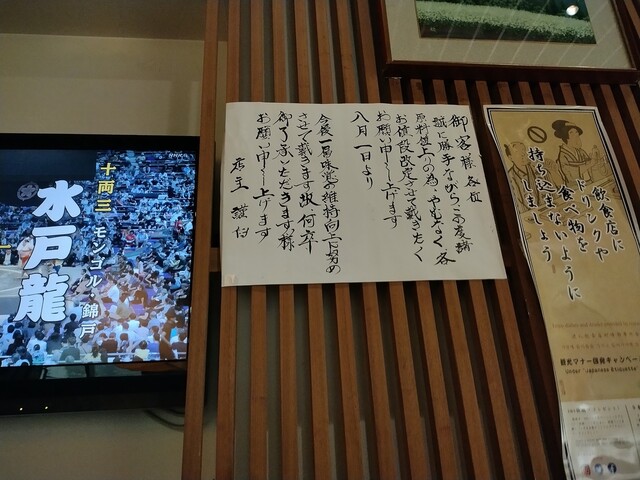 十両三
モンゴル・錦戸
水戸龍
御客様各位
誠に勝手ながらこの度諸
原料値上りの為、やむなく各
お値段改定させて戴きたく
お願い申し上げます
八月一日より
今後一層味覚の維持向上に努め
させて戴きます故、何卒
御了承いただきます様
お願い申し上げます
店主 謹白
飲食店に
ドリンクや
食べ物を
持ち込まないように
しましょう
観光マナー啓発キャンペーン
Under "Japanese Etiquette"